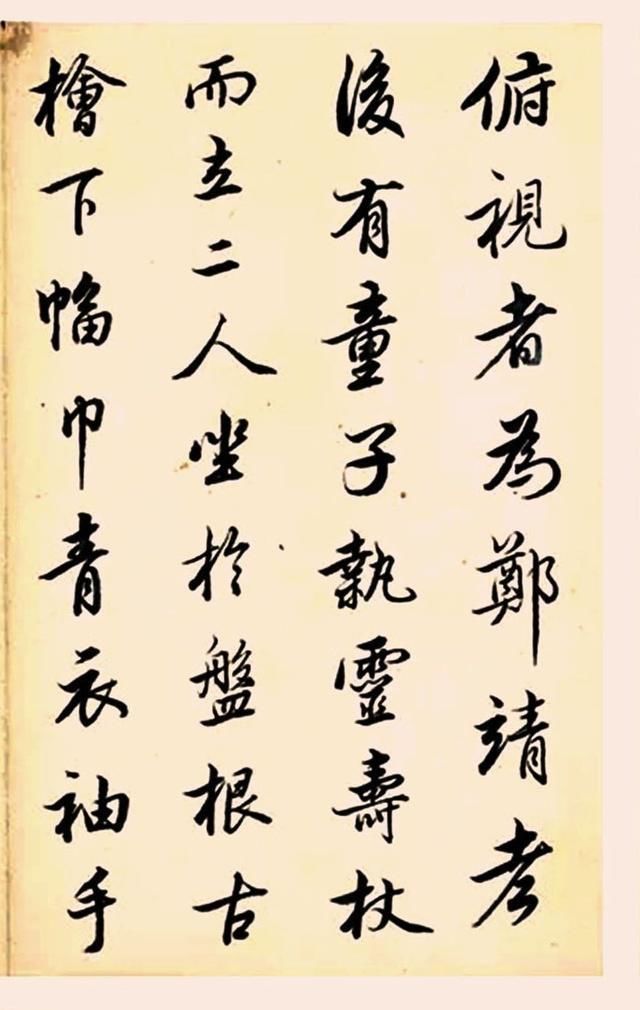 俯視者為鄭靖考
後有童子執靈壽杖
而立二人坐於盤根古
檜下幅巾青衣袖手